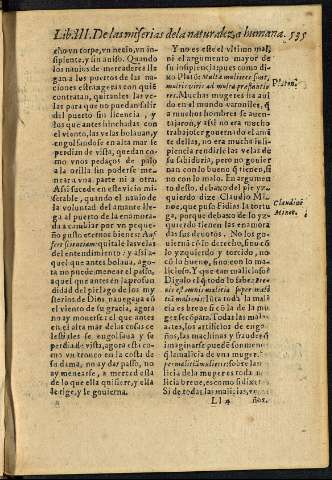 Lib. III. De las miserias de la naturaleza humana. 535
cho vn torpe, vn necio, vn in-
sipiente, y sin auiso. Quando
los nauios de mercaderes lle-
gan a los puertos de las na-
ciones estrangeras con quiẽ
contratan, quitanles las ve-
las para que no puedan salir
del puerto sin licencia, y
los que antes hinchadas con
el viento, las velas bolauan, y
engolfandose en alta mar se
perdian de vista, quedan co-
mo vnos pedaços de palo
a la orilla sin poderse me-
near a vna parte ni a otra.
Assi sucede en este vicio mi-
serable, quando el nauio de
la voluntad del amante lle-
ga al puerto de la enamora-
da a cambiar por vn peque-
ño gusto eternos bienes: Au-
fere scientiam: quitale las velas
del entendimiento: y assi a-
quel que antes bolaua, ago-
ta no puede menear el passo,
aquel que antes en la profun-
didad del pielago de los my-
sterios de Dios nauegaua cõ
el viento de su gracia, agora
no ay mouerse: el que antes
en el alta mar de las cosas ce-
lestiales se engolfaua y se
perdia de vista, agora està co-
mo vn tronco en la costa de
su dama, no ay dar passo, no
ay menearse, a merced esta
de lo que ella quisiere, y ella
le rige, y le gouierna.
Y no es este el vltimo mal,
ni el argumento mayor de
su insipiencia; pues como di-
xo Platõ: Multa mulieres sunt,
multis viris ad multa præstantio-
res. Muchas mugeres ha auí-
do en el mundo varoniles, q̃
a muchos hombres se auen-
tajaron, y assi no era mucho
trabajo ter gouierno del ama-
te dellas, no era mucha insi-
piencia rendirle las velas de
su sabiduria, pero no gouier
nan con lo bueno q̃ tienen, si
no con lo malo. En argumen-
to desto, debaxo del pie yz-
quierdo dize Claudio Mi-
noe, que puso Fidias la tortu
ga, porque debaxo de lo yz-
quierdo tienen las enamora-
das sus deuotos. No los go-
uierna cõ lo derecho, sino cõ
lo yzquierdo y torcido, no
cõ lo bueno, sino con lo ma-
licioso. Y que tan malicioso?
Digalo el q̃ todo lo sabe: Bre-
uis est omnis malitia super mali-
tiã mulieris: Para toda la mali-
cia es breue puesta de la mu-
ger escopota. Todas las mal-
artes, los artificios de enga-
ños, las machinas y fraudes q̃
imaginarse puede son menos
q̃ la malicia de vna muger.
per malitiã mulieris: Sobre la ma
licia de la muger es toda ma-
licia breue, es como si dixera:
Si de todas las malicias, y en-
Platon.
Claudius
Minoe.
Ll 4
ños,